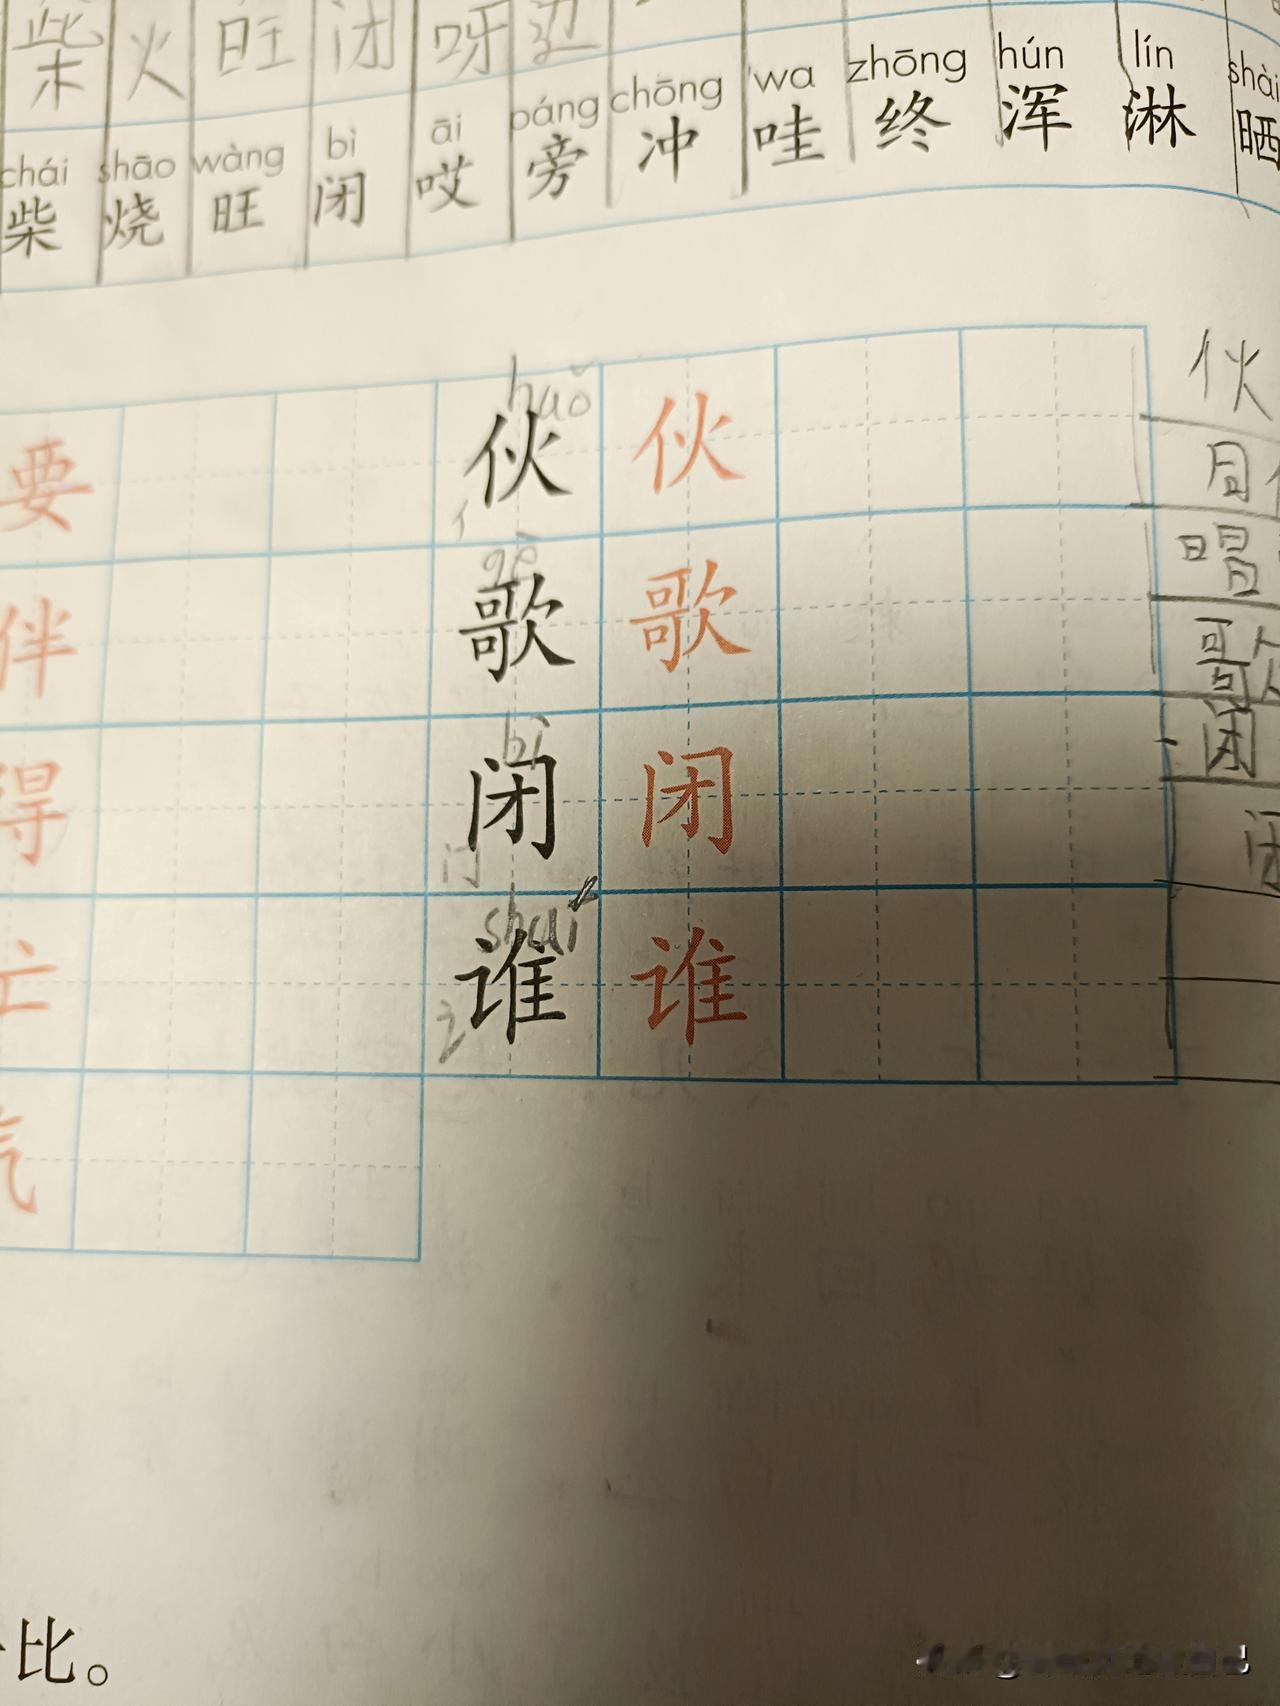 柴 火 旺 闭 呀 边
chái shāo wàng bì āi páng chōng wa zhōng hún lín shài
柴 烧 旺 闭 哎 旁 冲 哇 终 浑 淋 晒
huǒ
要 伙 伙 伙
亻
gē
伴 歌 歌 唱
歌
bì
得 闭 闭 闭
门
shuí
亡 谁 谁
讠
气
比。